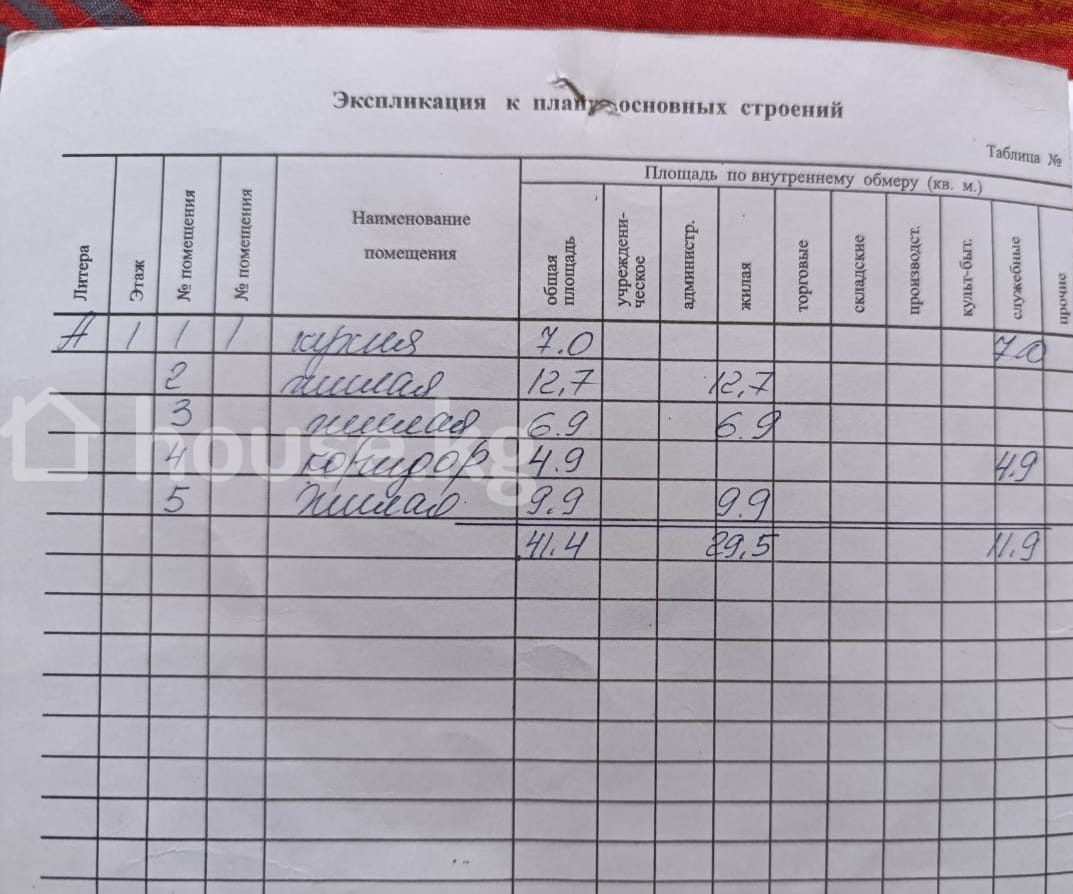 Экспликация к плану основных строений
Таблица №
Площадь по внутреннему обмеру (кв. м.)
Литера
Этаж
№ помещения
№ помещения
Наименование
помещения
общая
площадь
учреждени-
ческое
администр.
жилая
торговые
складские
производст.
культ-быт.
служебные
прочие
А 1 1 1 кухня 7.0 7.0
2 жилая 12,7 12,7
3 жилая 6.9 6.9
4 коридор 4.9 4.9
5 жилая 9.9 9.9
41.4 29,5 11.9
house.kg